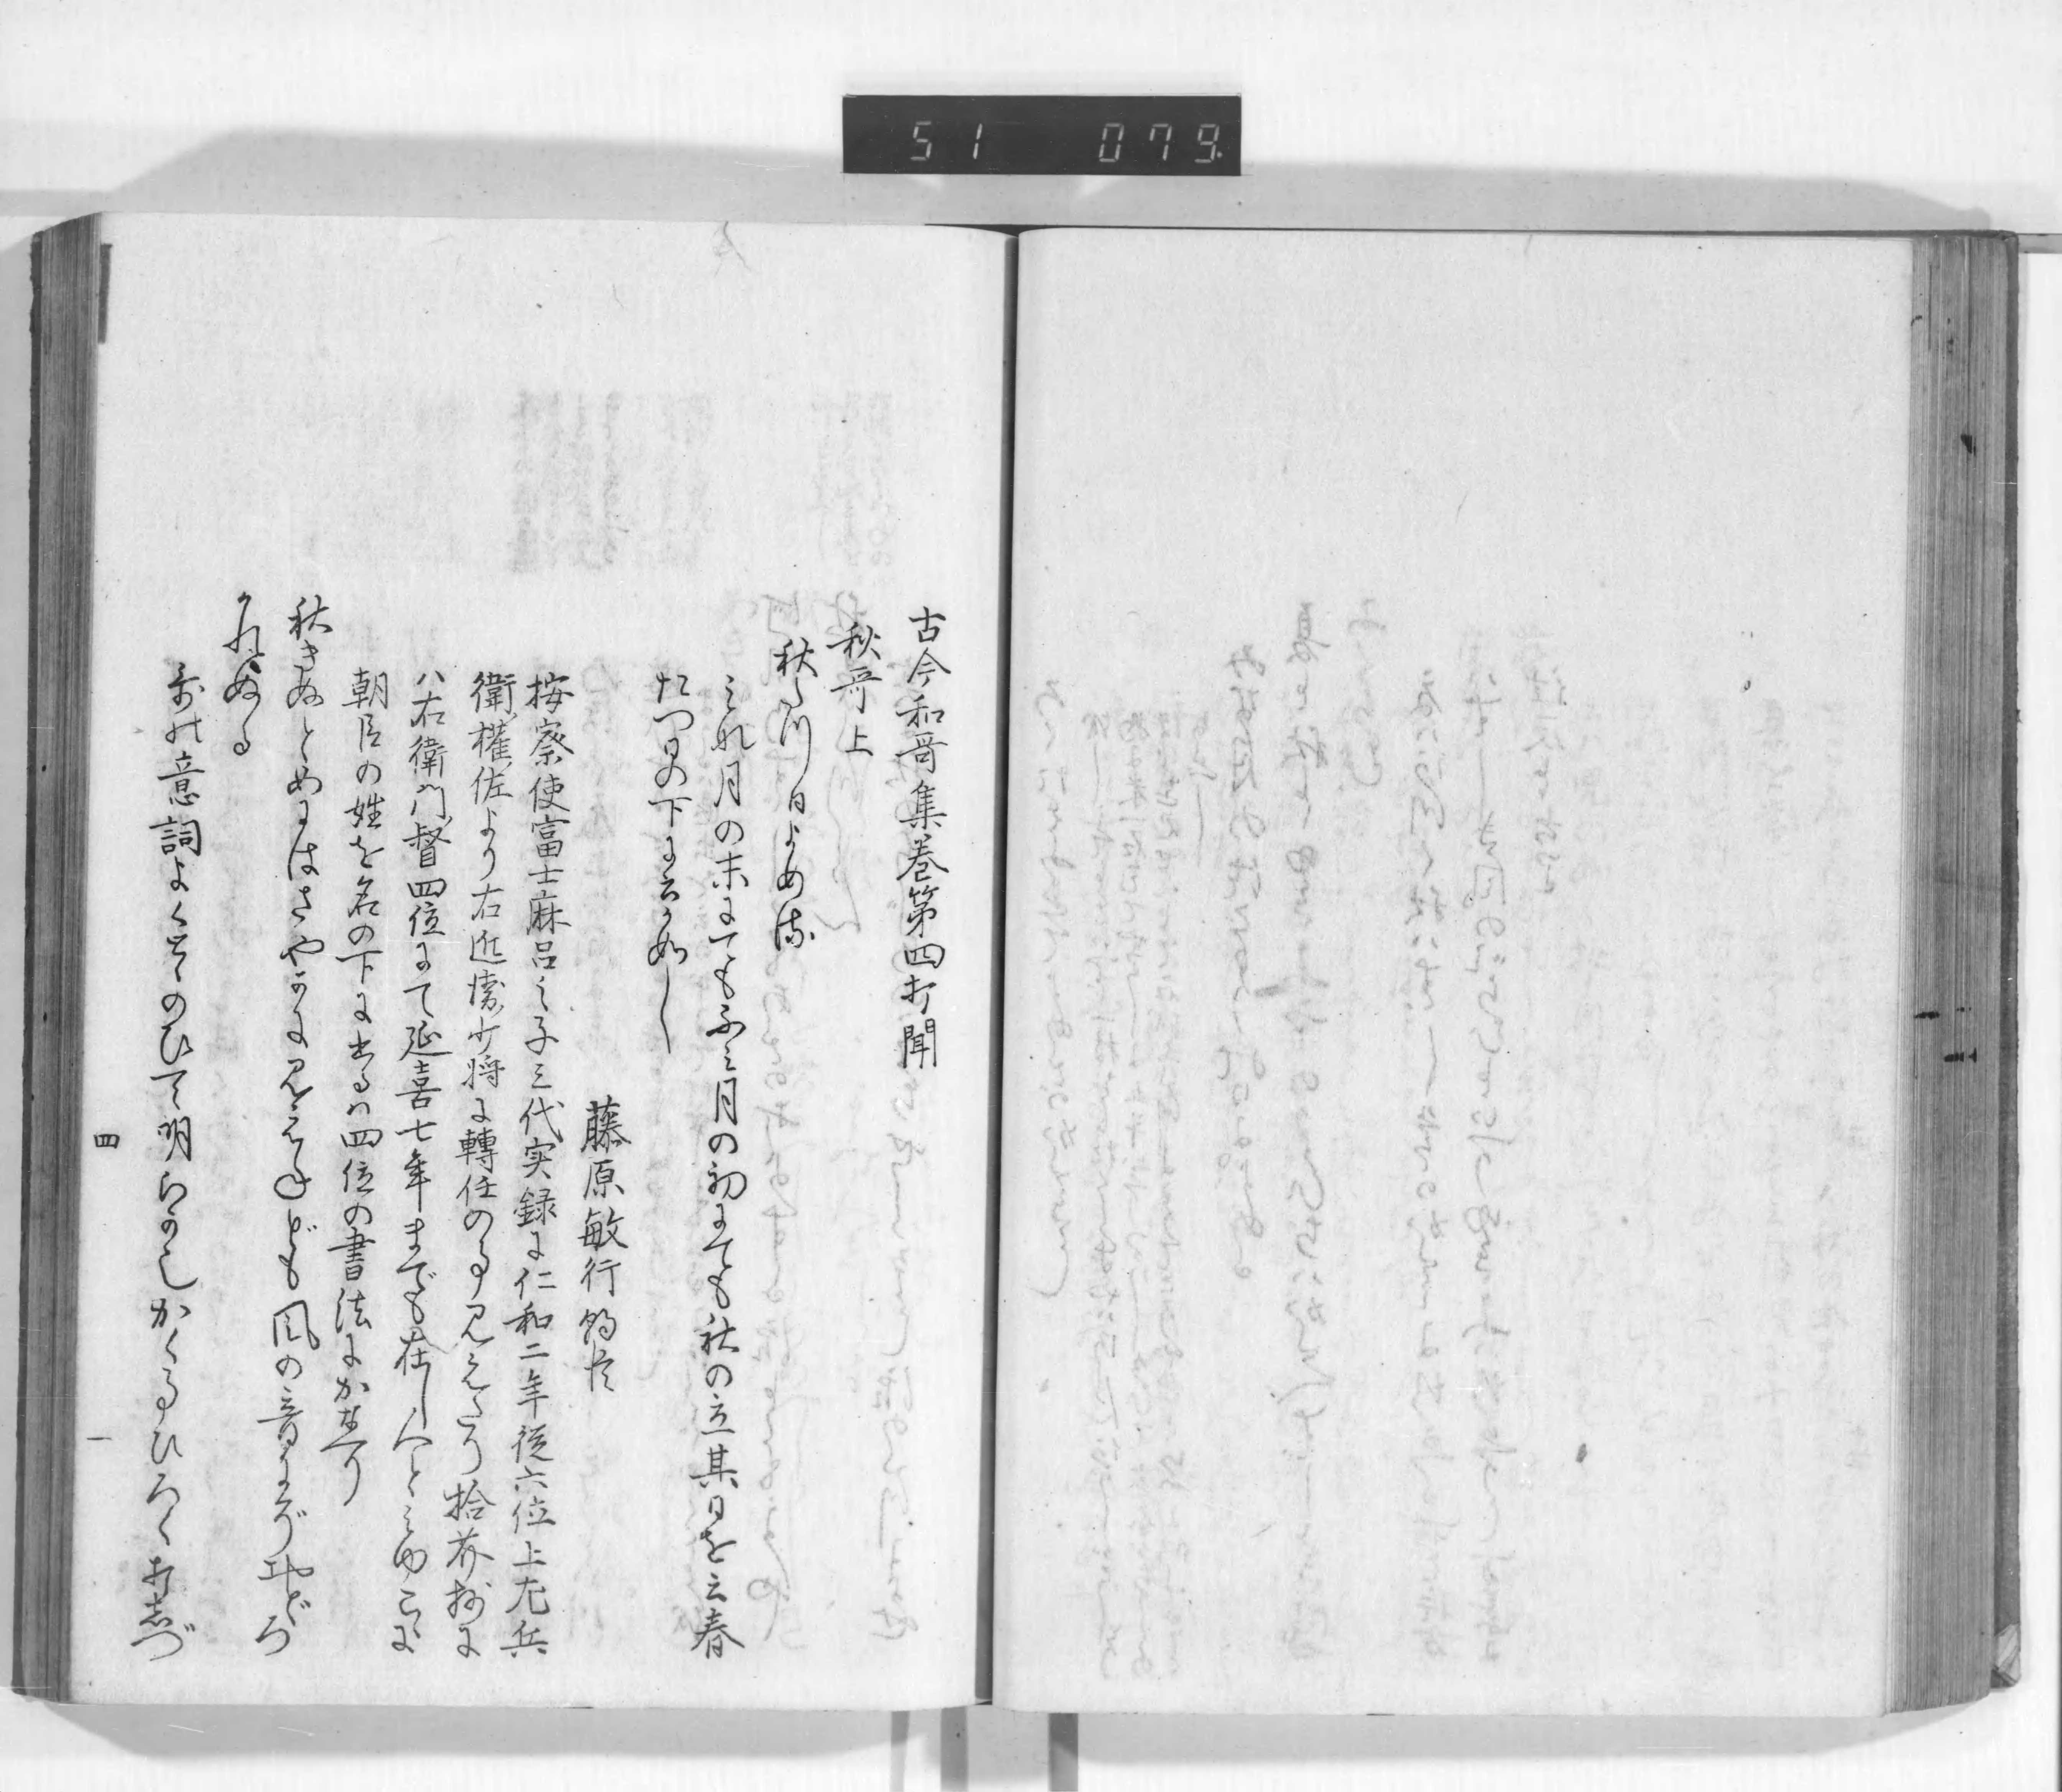 51 079
古今和哥集巻第四打聞
秋哥上
秋たつ日よめる
みな月の末にてもふみ月の初にても秋の立其日を云春
たつ日の下に云か如し
藤原敏行朝臣
按察使富士麻呂之子三代実録に仁和二年従六位上左兵
衛権佐より右近衛少将に轉任の事見えたり拾芥抄に
ハ右衛門督四位にて延喜七年までも在し人とみゆこゝに
朝臣の姓を名の下に出るハ四位の書法にかなへり
秋きぬとめにはさやかに見えねども風の音にぞおどろ
かれぬる
哥の意詞よくとゝのひて明らかなしかくうるひろく打しづ
四
一